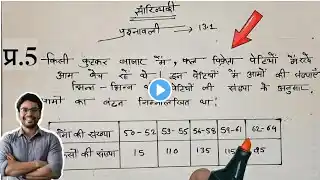 सांख्यिकी
प्रश्नावली - 13.1
प्र.5 - किसी फुटकर बाजार में, फल विक्रेता पेटियों में रखे
आम बेच रहे थे। इन पेटियों में आमों की संख्याएँ
भिन्न-भिन्न पेटियों की संख्या के अनुसार,
आमों का बंटन निम्नलिखित था:
की संख्या 50-52 53-55 56-58 59-61 62-64
की संख्या 15 110 135 115